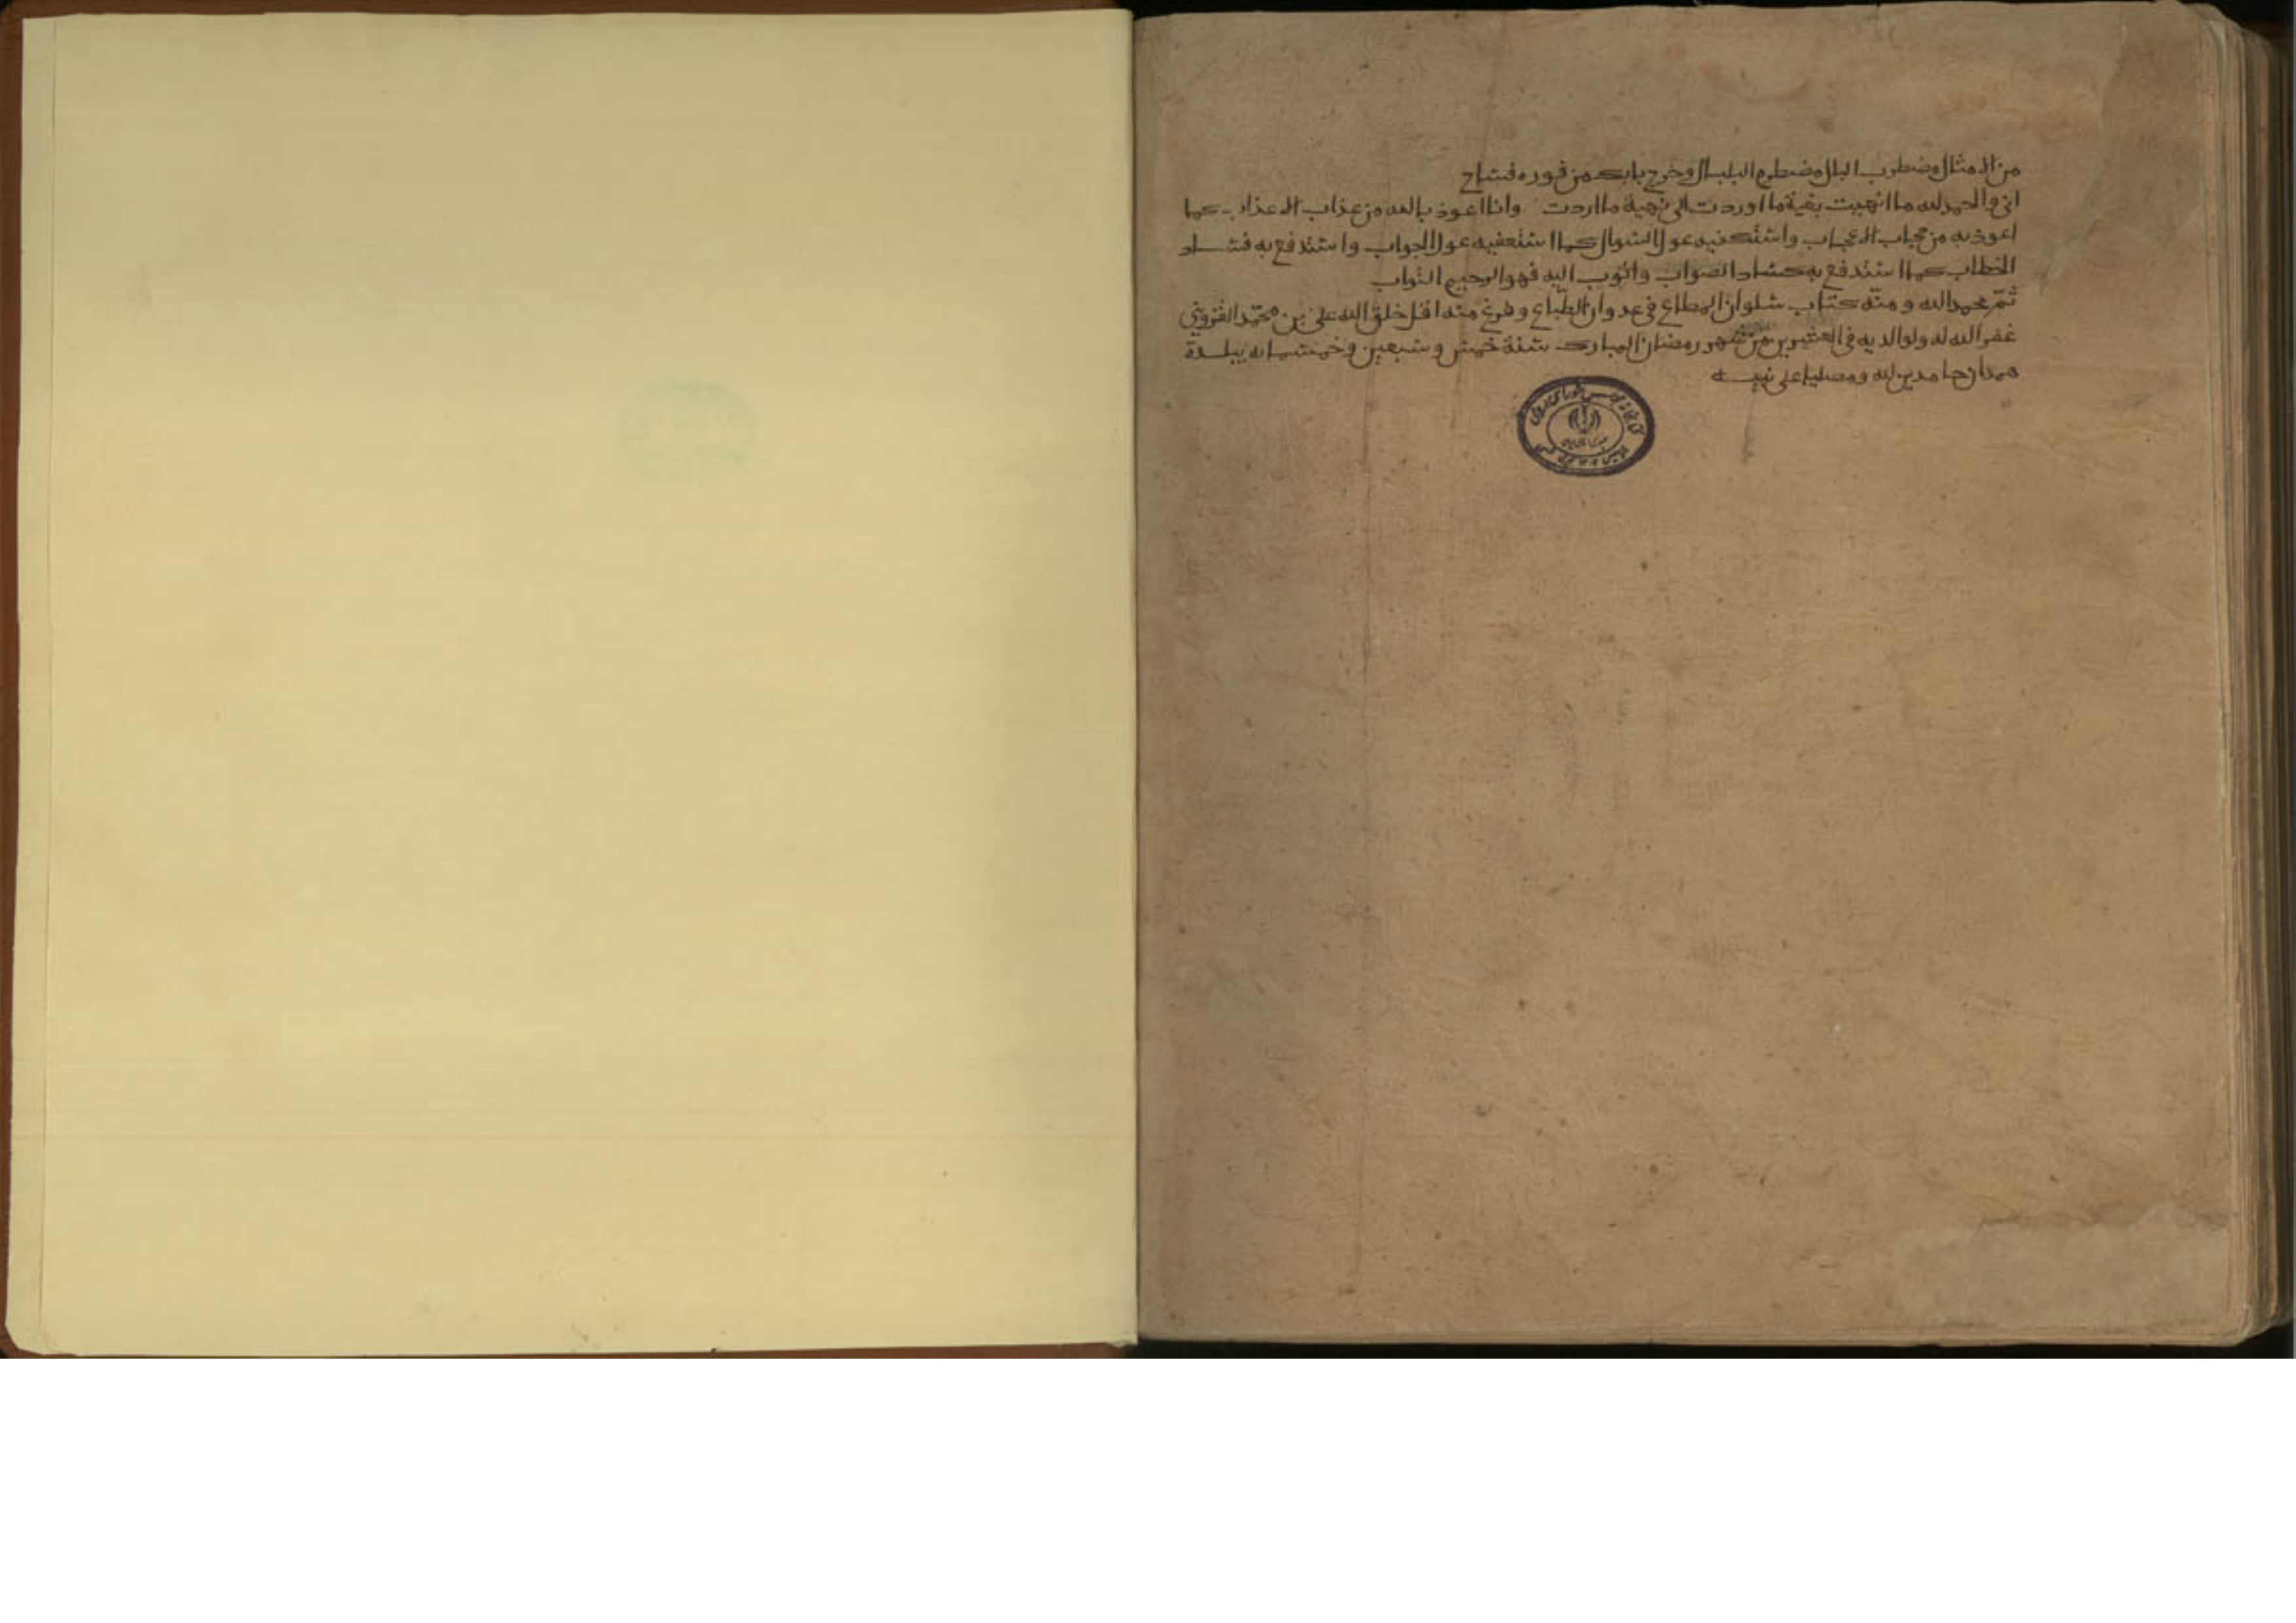 من الامثال مضطرب البال مضطرم البلبال وخرج بابك من فوره فساح
انى والحمد لله ما انهيت بغية ما اوردت الى نهية ما اردت وانا اعوذ بالله من عذاب الاعذاب كما
اعوذ به من حجاب الاعجاب واستكفيه عول السوال كما استعفيه عول الجواب واستدفع به فساد
الخطاب كما استدفع به كساد الصواب واتوب اليه فهو الرحيم التواب
تم بحمد الله ومنه كتاب سلوان المطاع فى عدوان الطباع وفرغ منه اقل خلق الله على بن محمد القزويني
غفر الله له ولوالديه فى العشرين من شهر رمضان المبارك سنة خمس وسبعين وخمسمايه ببلدة
همدان حامدين لله ومصليا على نبيه